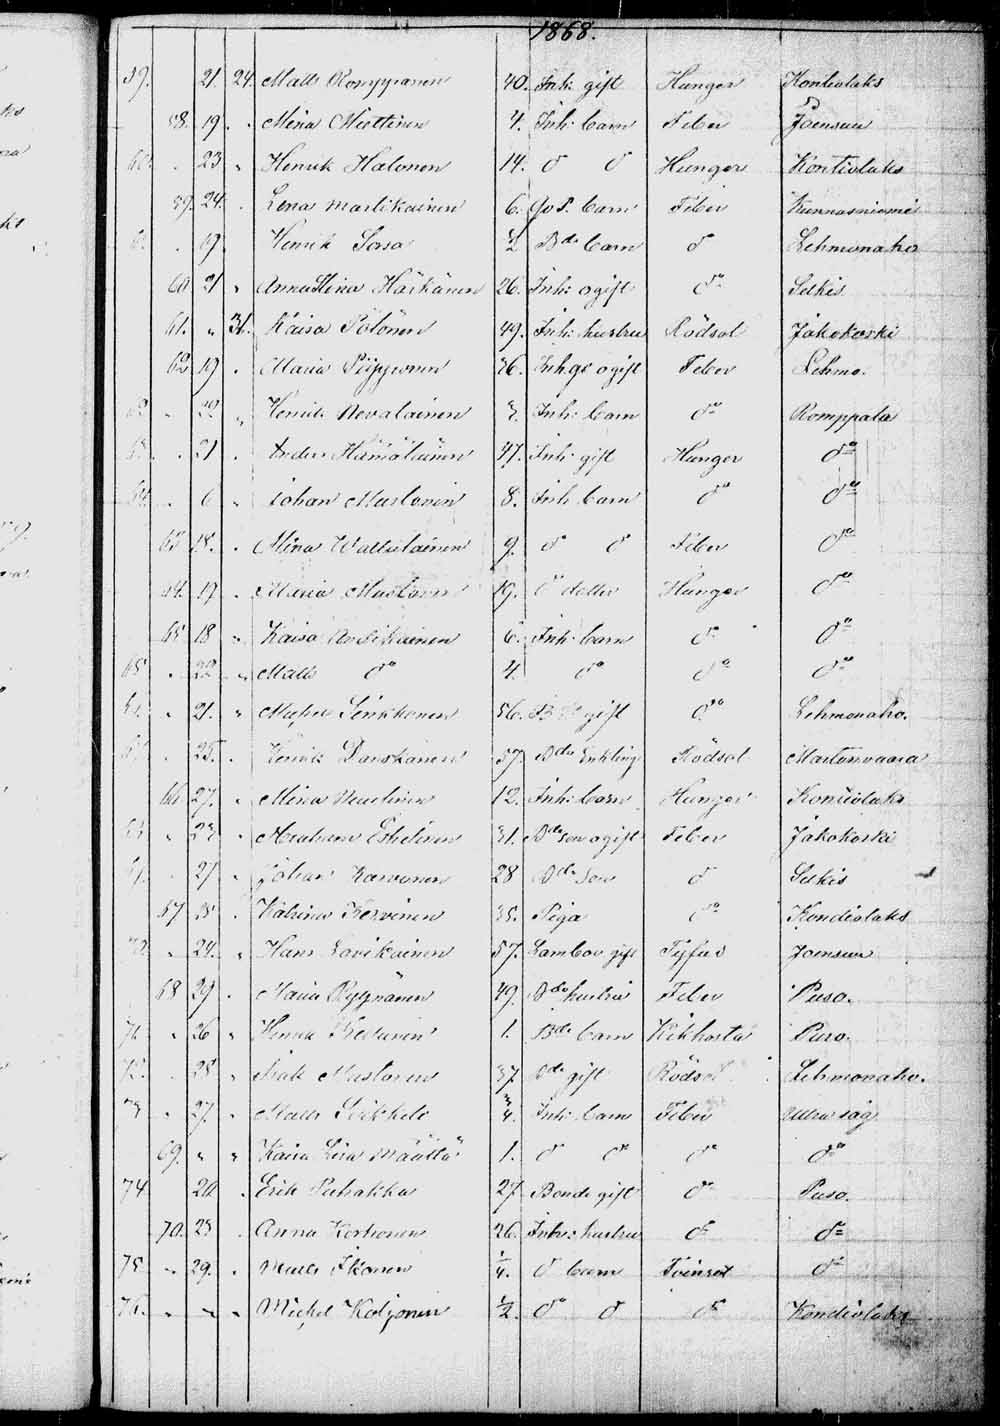 1868.
59. 21. 24. Matts Romppanen 40. Inh: gift Hunger Kontiolaks
58. 19. Mina Miettinen 4. Inh: barn Feber Joensuu
60. 23 Henrik Halonen 14. d d Hunger Kontiolaks
59. 24. Lena Martikainen 6. barn Feber Kunnasniemi
19. Henrik Sorsa ½ Bde barn do Lehmonaho
60. 21 Anna Stina Härkänen 26. Inh: ogift do Selkis
61. " 31. Kaisa Pölönen 49. Inh: hustru Rödsot Jakokoski
62. 19 Maria Piipponen 36. ogift Feber Lehmo.
22. Henrik Nevalainen Inh: barn do Romppala
21 Anders Hämäläinen 47. Inh: gift Hunger do
6 Johan Mustonen 8. Inh: barn do do
63 18. Mina Wattulainen 9. d d Feber do
64. 19 Maria Mustonen 19. do dotter Hunger do
65 18 Kaisa 6. Inh: barn do do
22 Matts do 4. do do do
21. Michel Sinkkonen 56. gift do Lehmonaho.
25. Henrik Danskanen 57 Bde Enkling Rödsot Martonvaara
66 27. Mina 12. Inh: barn Hunger Kontiolaks
27 Abraham Eskelinen 31. Bde son ogift Feber Jakokoski
27 Johan Karvonen 28 Bde son d Selkis
67 Katrina Kervinen 35. Piga do Kondiolaks
24. Hans Lovikainen 57. gift Tyfus Joensuu
68 29 Maria Ryynänen 49. Bde hustru Feber Puso.
26 Henrik 1. Bde barn Kikhosta Puso.
28 Isak Mustonen 37. Bde gift Rödsot Lehmonaho.
27. Matts ¾ Inh: barn Feber Utra såg
69. " " Kaisa Lisa Määttä 1. d do do do
74 20. Erik Puhakka 27. Bonde gift do Puso.
70. 25 Anna Korhonen 26. Inh: hustru do do
75 29. Matts Ikonen ¼. d barn Tvinsot do
76. " " Michel Koljonen ½. do d do Kondiolaks